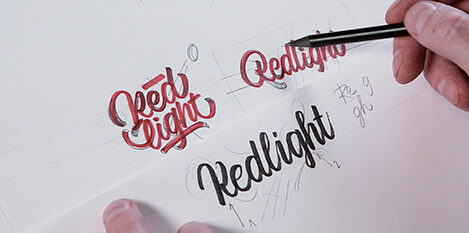 Red
light
Redlight
Redlight
Re g
gh
1
2